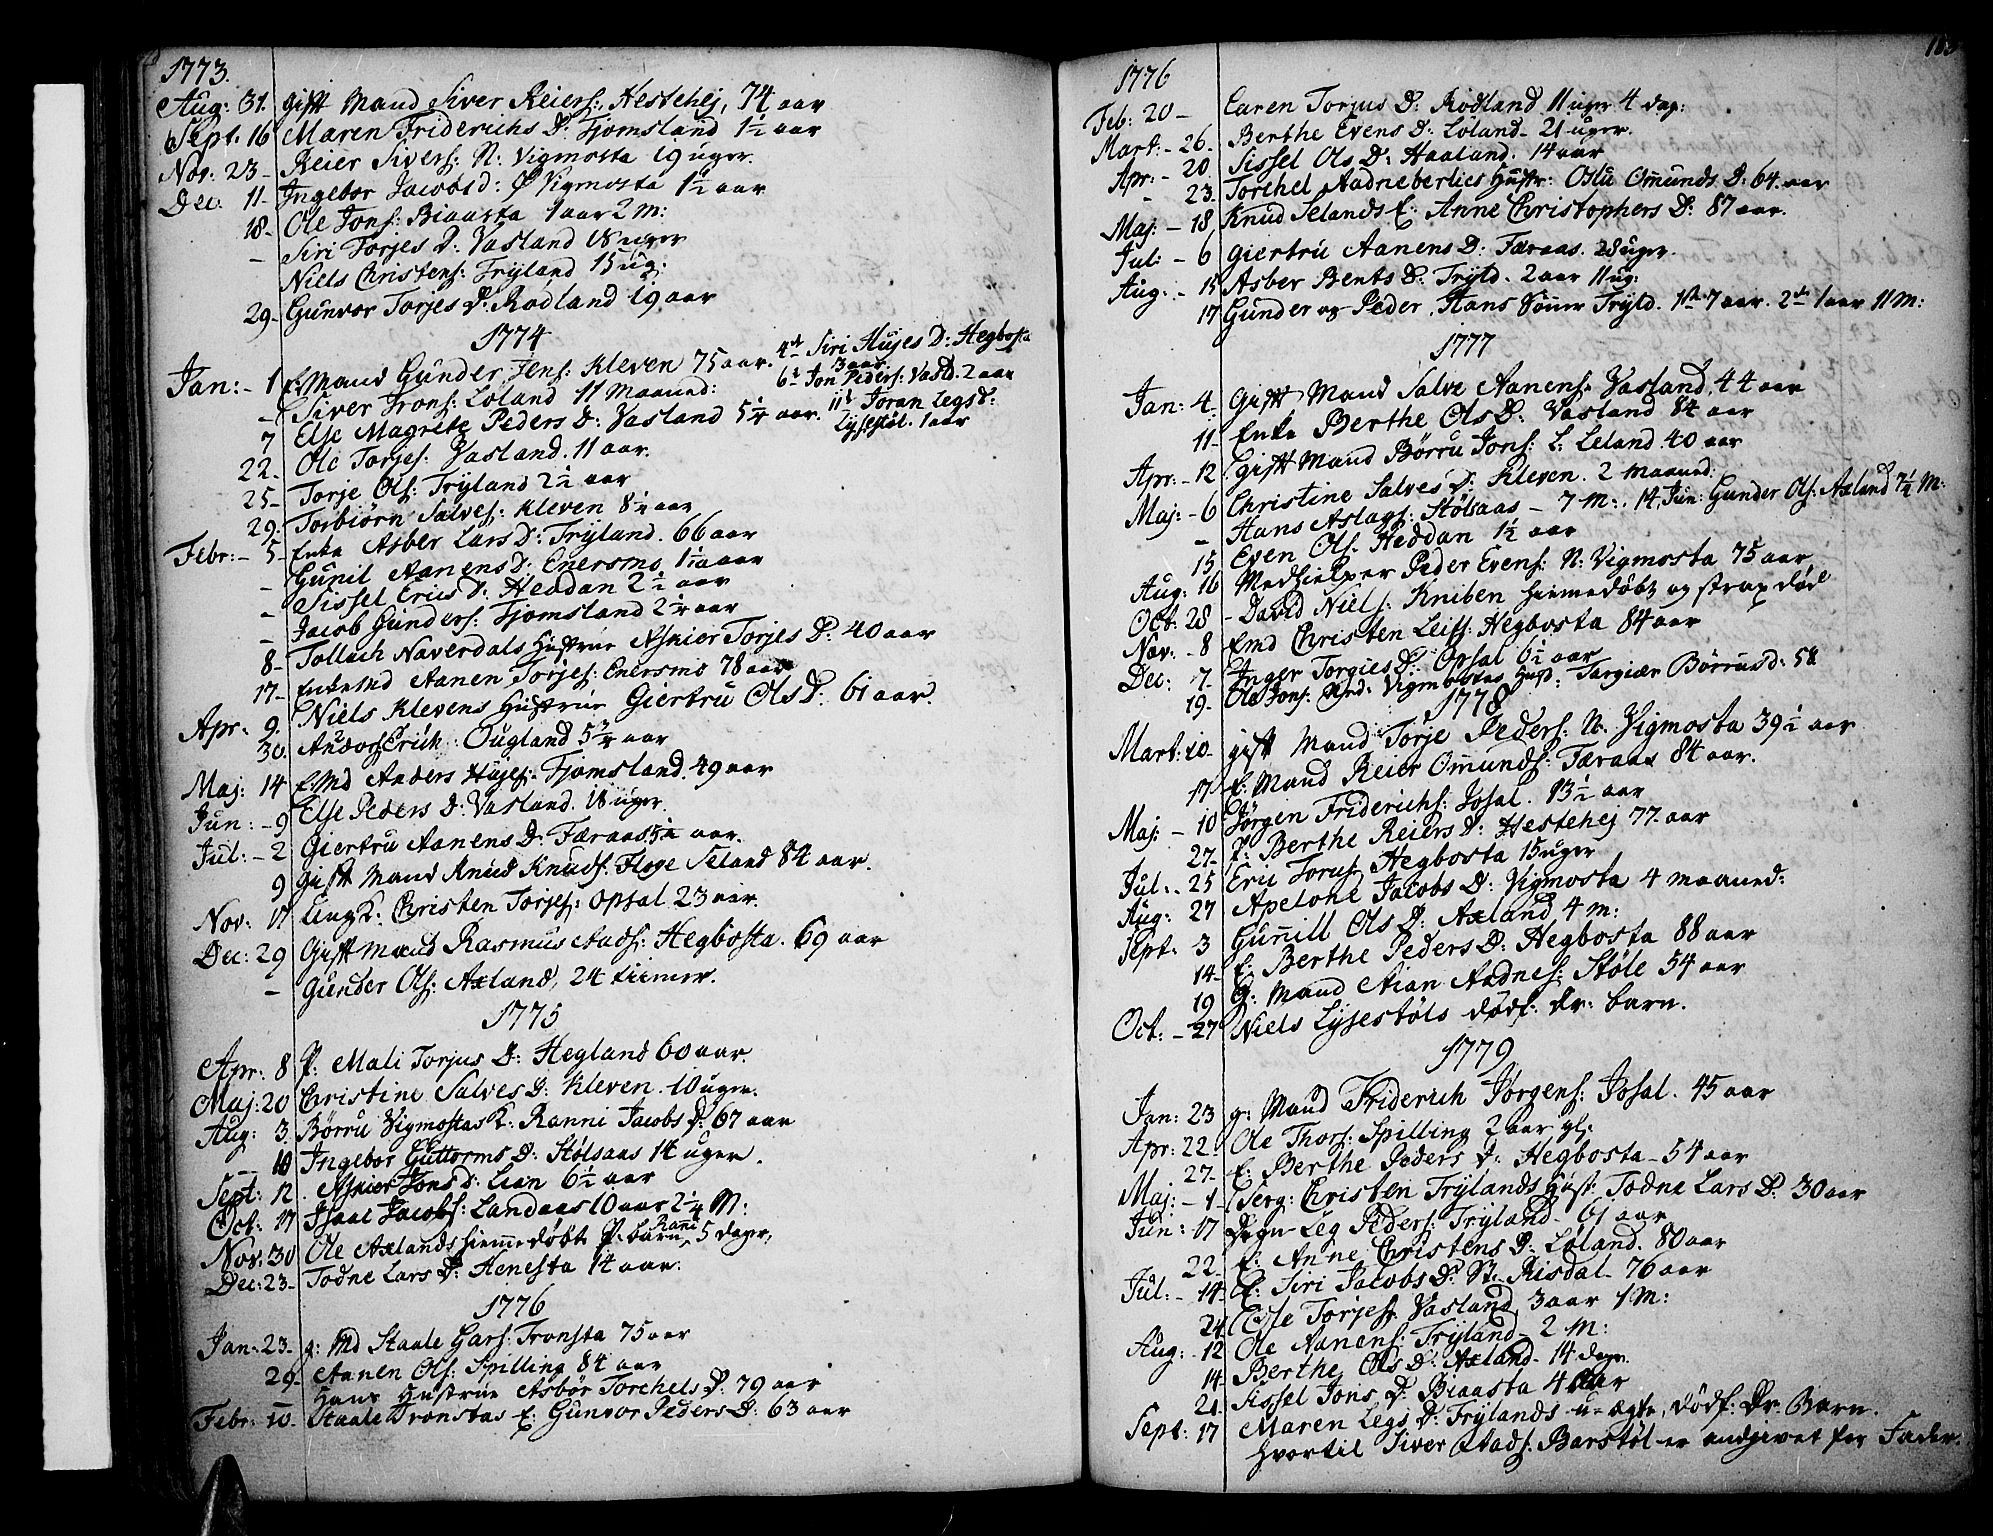 1773.
Aug: 31. gift Mand Siver Reiers: Hestehej, 74 aar
Sept. 16 Maren Friderichs D: Fjomsland 1½ aar
Nov: 23 - Reier Sivers: N: Vigmosta 19 uger.
Dec: 11 - Ingebor Jacobs d: Vigmosta 1½ aar
18 - Ole Jons: Biaasta 1 aar 2 M:
- Siri Torjes D: Vasland 18 uger
Niels Christens: Tryland 15 ug:
29 - Gunvor Torjes D: Rodland 19 aar
1774
Jan: - 1 E: Mand Gunder Jens: Kleven 75 aar. 4de Siri Aujes D: Hegbosta 3 aar
- Siver Trons: Løland 11 Maaned: 6te Jon Peders: Vasld. 2 aar
7 Else Magrete Peders D: Vasland 5¼ aar. 11te Joran Legs D: Lysestøl. 1 aar
22 - Ole Torjes: Vasland. 11 aar.
25 - Torje Ols: Tryland 2½ aar
29 - Torbiørn Salves: Kleven 8¼ aar
Febr: - 5 - Enke Asber Lars D: Tryland. 66 aar
- Gunil Aanens D: Enersmo 1½ aar
- Sissel Erics D: Heddan 2½ aar
- Jacob Gunders: Fjomsland 2¼ aar
8 - Tollach Naverdals Hustrue Asnier Torjes D: 40 aar
17 - Enkemd Aanen Torjes: Enersmo 78 aar
Apr: 9. Niels Klevens Hustrue Giertru Ols D: 61 aar.
30 Anders Erich: Ougland 5¾ aar
Maj: 14 E: Md Anders Hujes: Fjomsland. 49 aar
Jun: - 9 Else Peders D: Vasland. 18 uger.
Jul: - 2 Giertru Aanens D: Færaas 5½ aar.
9 Gift Mand Knud Knuds: Floge Seland 84 aar.
Nov: 17 Ungk: Christen Torjes: Opsal 23 aar.
Dec: 29 Gift Mand Rasmus Aads: Hegbosta. 69 aar
- Gunder Ols: Axland, 24 tiimer.
1775
Apr: 8 P: Mali Torjus D: Hegland 60 aar.
Maj: 20 Christine Salves D: Kleven. 10 uger.
Aug: 3. Børru Vigmostas K: Ranni Jacobs D: 67 aar
- 10 Ingebor Guttorms D: Stølsaas 14 uger.
Sept: 12. Asnier Jons d: Lian 6½ aar
Oct: 17 Isaac Jacobs: Landaas 10 aar 2¼ M:
Nov: 30 Ole Axlands hiemedøbte P. barn Rani 5 dager,
Dec: 23 - Todne Lars D: Aenesta 14 aar:
1776
Jan: 23 - g: Md Staale Gars: Tronsta 75 aar
29 - Aanen Ols: Spilling 84 aar
- Hans Hustrue Asbør Torchels D: 79 aar
Febr: 10 - Staale Tronstas E: Gunvor Peders D: 63 aar
1776
Feb: 20 - Caren Torjus D: Rodland 11 uger 4 dag:
Mart: - 26 - Berthe Evens D: Løland - 21 uger.
Apr: - 20 Sissel Ols D: Haaland. 14 aar
- 23. Torchel Aadneberlies Hustr: Oslu Omunds D: 64 aar
Maj: - 18 Knud Selands E: Anne Christophers D: 87 aar.
Jul: - 6 Giertru Aanens D: Færaas. 28 uger.
Aug: - 15 Asber Bents D: Tryld. 2 aar 11 ug:
17 Gunder og Peder Hans Sønner Tryld. 1ste 7 aar. 2de 1 aar 11 M:
1777
Jan: 4. Gift Mand Salve Aanens: Vasland. 44 aar
11 - Enke Berthe Ols D: Vasland 84 aar
Apr: - 12 gift Mand Børru Jons: L. Leland 40 aar
Maj: - 6 Christine Salves D: Kleven. 2 Maaned:
- Hans Aslags: Stølsaas - 7 M: 14. Jun: Gunder Ols: Axland 7¼ M:
15 Even Ols: Heddan 1½ aar
Aug: 16 Medhielper Peder Evens: N: Vigmosta 75 aar
Oct: 28 - David Niels: Kniben hiemedøbt og strax død
Nov: - 8 Emd Christen Leifs: Hegbosta 84 aar
Dec: 7 - Inger Torgies D: Opsal 6½ aar
19 - Ole Jons: Vigmostas Hust: Torgiær Børrus d: 58
1778
Mart: 10 - gift Mand Torje Peders: N. Vigmosta 39½ aar
17 E: Mand Reier Omunds: Færaas 84 aar.
Maj: - 10 Jørgen Friderichs: Josal. 13½ aar
27 - P: Berthe Reiers D: Hestehej 77 aar
Jul: - 25 Eric Torus: Hegbosta 15 uger
Aug: 27 Apelone Jacobs D: Vigmosta 4 maaned:
Sept: 3 Gunill Ols D: Axland 4 M:
14 - E: Berthe Peders D: Hegbosta 88 aar
19 G: Mand Aian Aadnes: Støle 54 aar
Oct: - 27 Niels Lysestøls dødf: Dr: barn.
1779
Jan: 23 g: Mand Friderich Jørgens: Josal. 45 aar
Apr: 22. Ole Thors: Spilling 2 aar gl:
27 - E: Berthe Peders D: Hegbosta - 54 aar
Maj: - 1 - Serg: Christen Trylands Hust. Todne Lars D: 30 aar
Jun: 17 Degn Leg Peders: Tryland - 61 aar
22 - E: Anne Christens D: Løland. 80 aar
Jul: - 14 E: Siri Jacobs D: St. Risdal - 76 aar
24 Else Torjes: Vasland, 3 aar 1 M:
Aug: - 12 Ole Aanens: Tryland - 2 M:
14 - Berthe Ols D: Axland - 14 dage.
21. Sissel Jons D: Biaasta 4 aar
Sept: 17 Maren Legs D: Trylands u-ægte, dødf: Dr. Barn.
hvortil Siver Aads: Barstøl er andgivet for Fader.